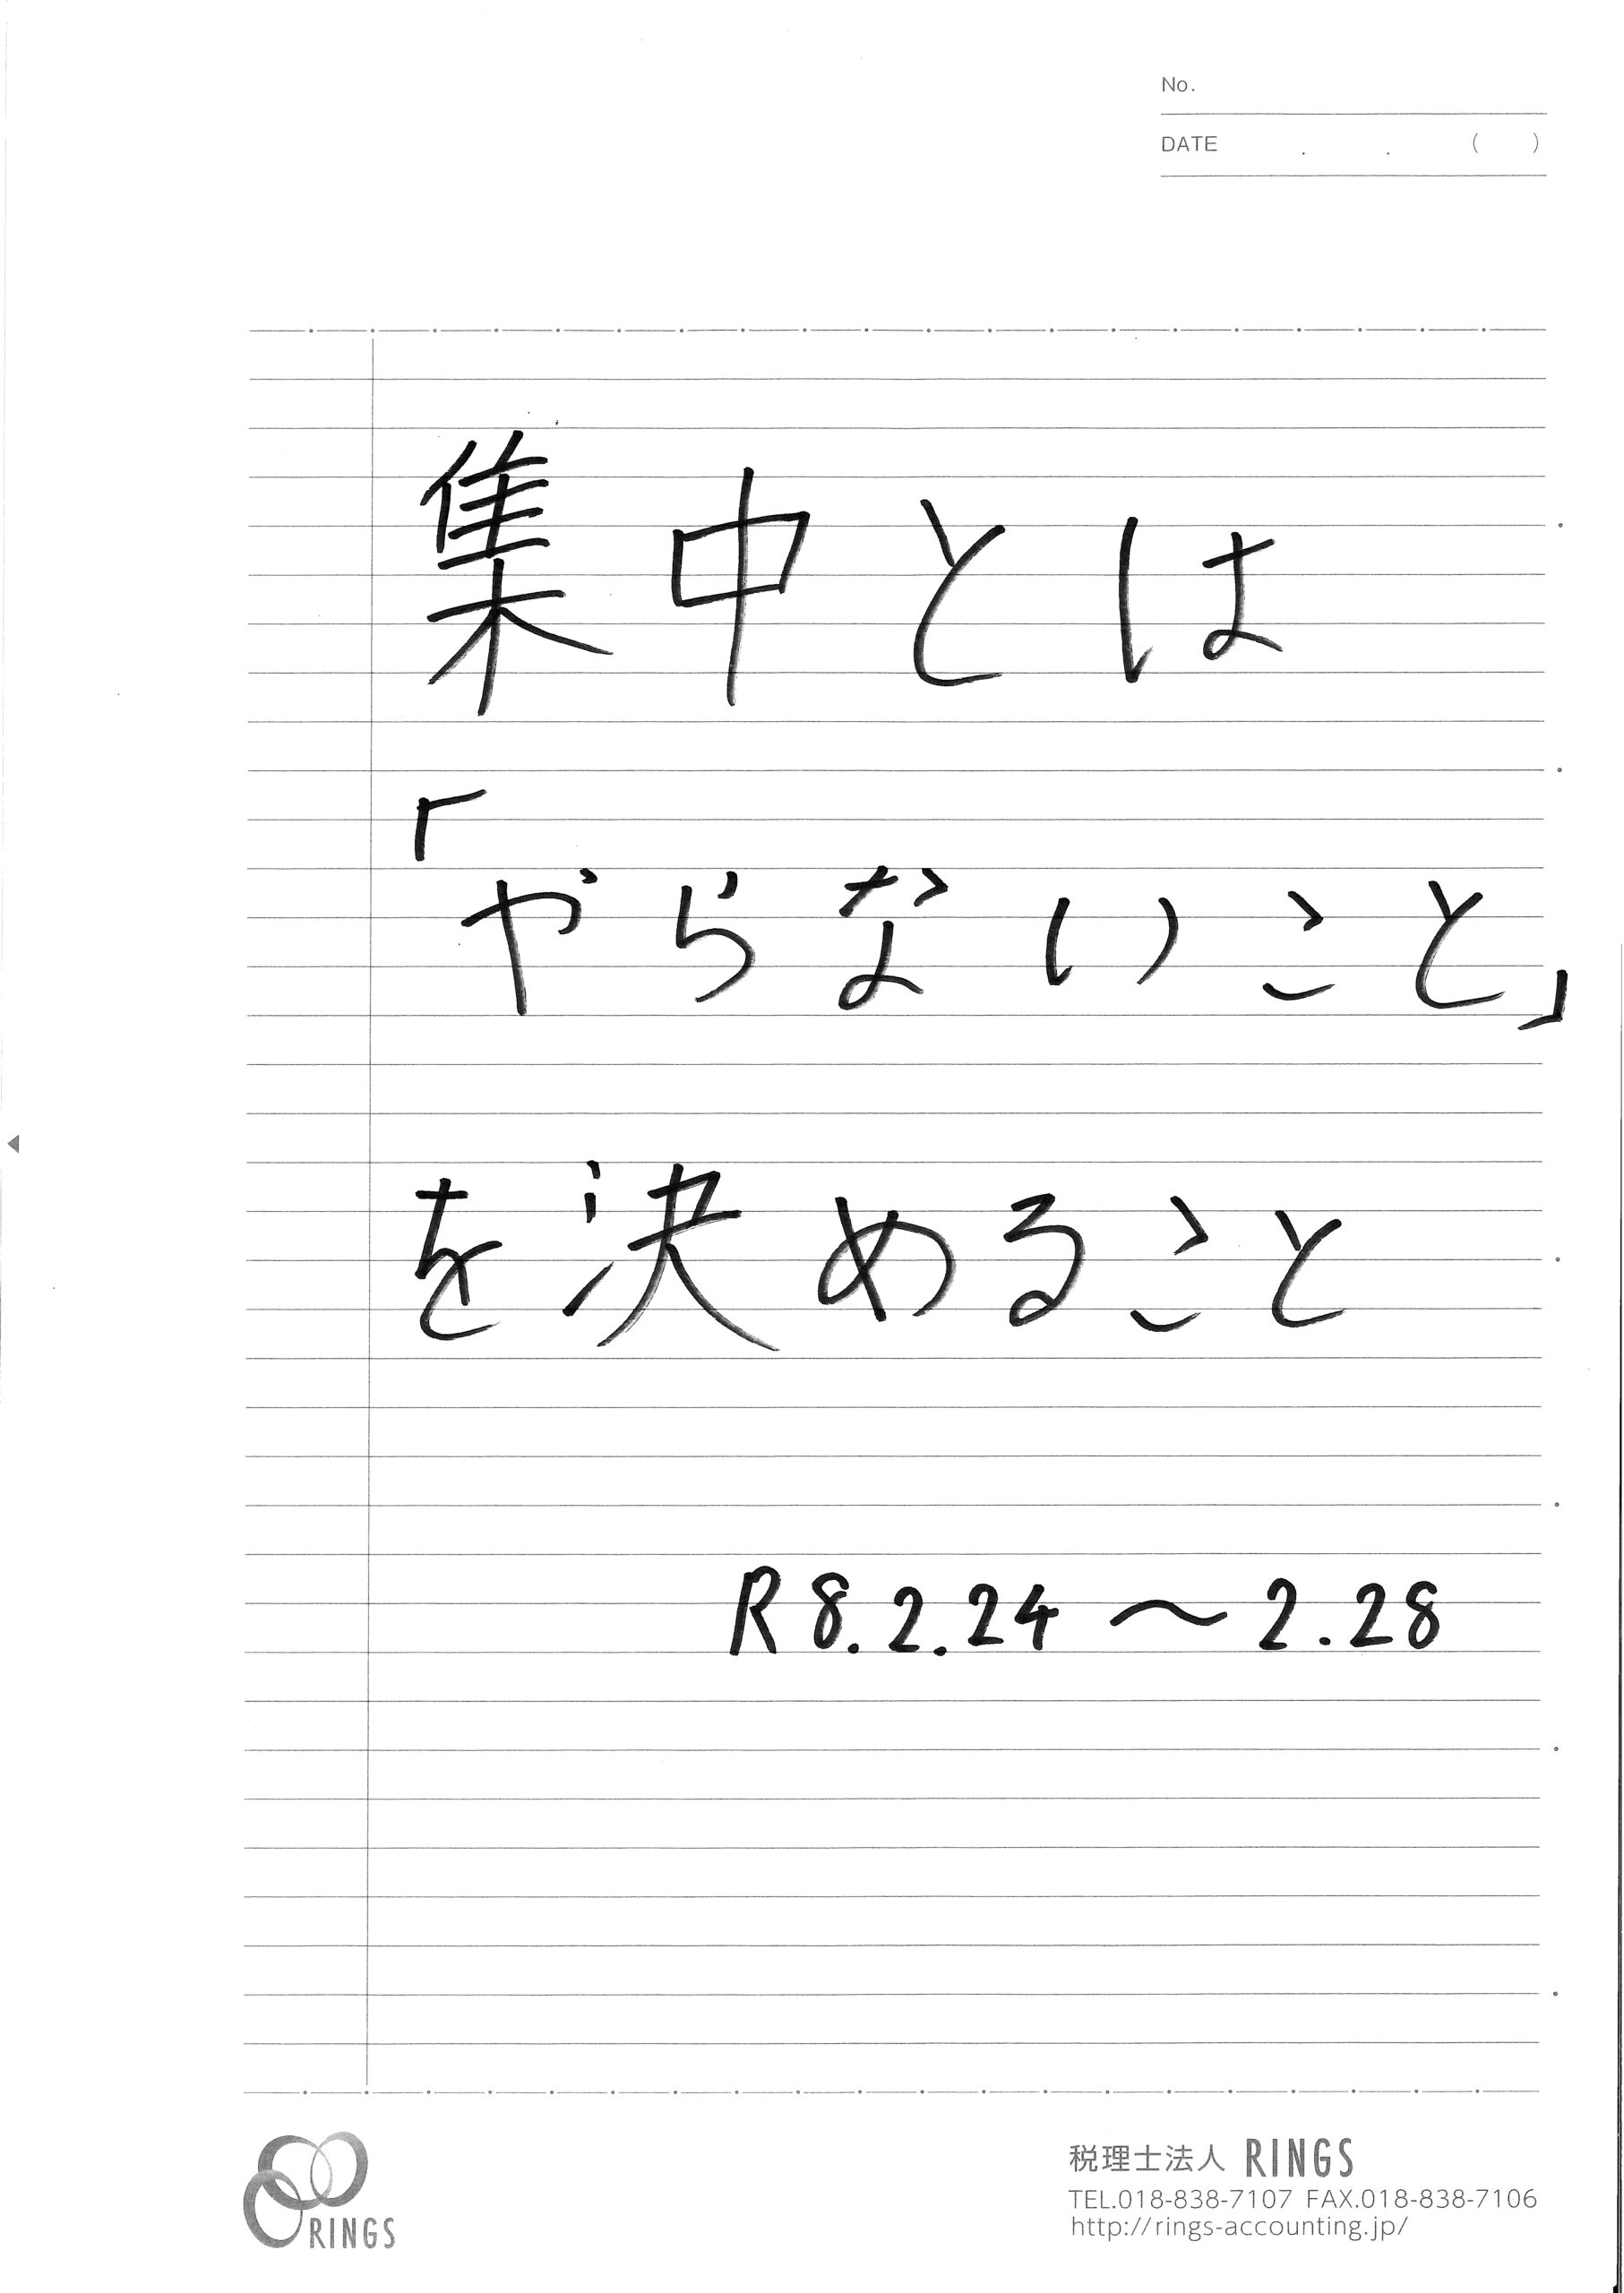 No.
DATE . . ( )
集中とは
「やらないこと」
を決めること
R8.2.24～2.28
RINGS
税理士法人 RINGS
TEL.018-838-7107 FAX.018-838-7106
http://rings-accounting.jp/